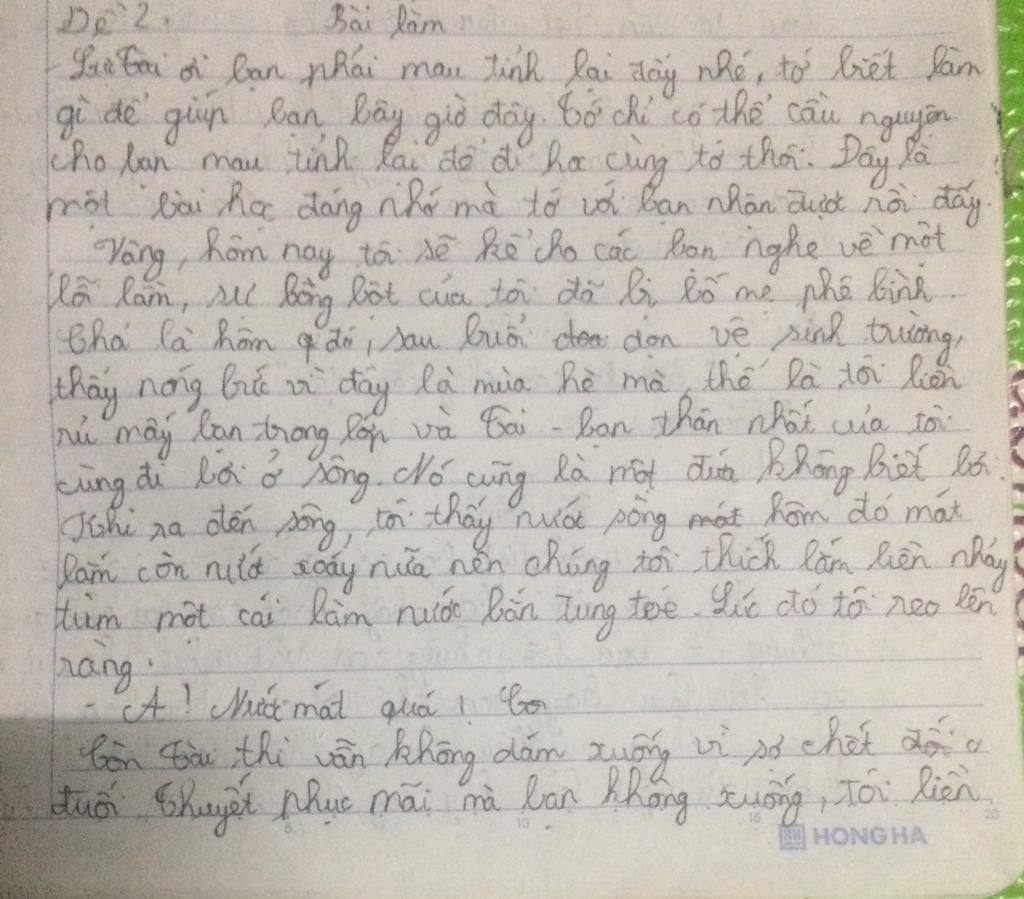 Đề 2. Bài làm
- Tài ơi bạn phải mau tỉnh lại đấy nhé, tớ biết làm
gì để giúp bạn bây giờ đây. Tớ chỉ có thể cầu nguyện
cho bạn mau tỉnh lại để đi học cùng tớ thôi. Đây là
một bài học đáng nhớ mà tớ với bạn nhận được rồi đấy.
Vâng, hôm nay tôi sẽ kể cho các bạn nghe về một
lỗi lầm, sự bồng bột của tôi đã bị bố mẹ phê bình.
Chả là hôm đó, sau buổi dọn vệ sinh trường,
thấy nóng bức vì đây là mùa hè mà, thế là tôi liền
rủ mấy bạn trong lớp và Tài - bạn thân nhất của tôi
cùng đi bơi ở sông. Nó cũng là một đứa không biết bơi.
Khi ra đến sông, tôi thấy nước sông mát hôm đó mát
lắm còn nước xoáy nữa nên chúng tôi thích lắm liền nhảy
tùm một cái làm nước bắn tung toé. Lúc đó tôi reo lên
rằng.
- A! Nước mát quá!
Còn Tài thì vẫn không dám xuống vì sợ chết
đuối. Thuyết phục mãi mà bạn không xuống, tôi liền
HONG HA
5 10 15 20